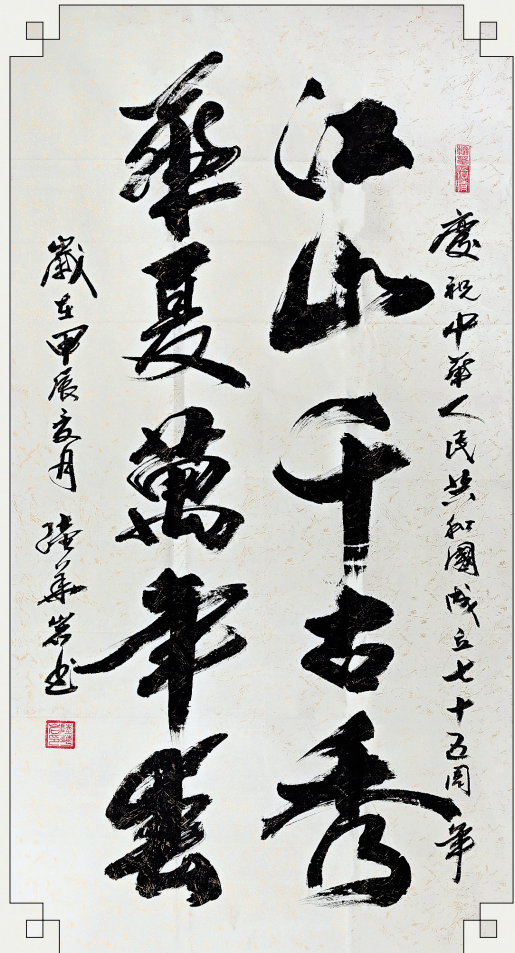 慶祝中華人民共和國成立七十五周年
江山千古秀
華夏萬年春
歲在甲辰夏月
華岩书